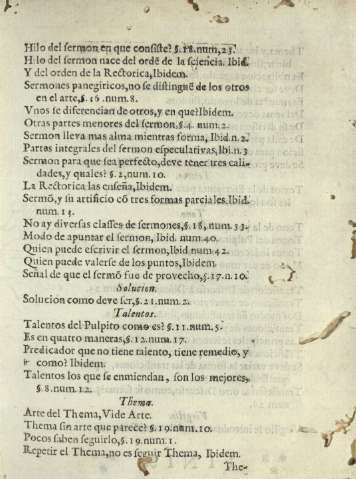 Hilo del sermon en que consiste? §.18.num,23.
Hilo del sermon nace del ordẽ de la sciencia. Ibid.
Y del orden de la Rectorica, Ibidem.
Sermones panegiricos, no se distinguẽ de los otros
en el arte, §.16.num.8.
Vnos se diferencian de otros, y en que? Ibidem.
Otras partes menores del sermon, §.4. num.2.
Sermon lleva mas alma mientras forma, Ibid.n.2.
Partes integrales del sermon especulativas, Ibi.n.3
Sermon para que sea perfecto, deve tener tres cali-
dades, y quales? §.2, num.10.
La Rectorica las enseña, Ibidem.
Sermõ, y su artificio cõ tres formas parciales. Ibid.
num.13.
No ay diversas classes de sermones, §.18, num.33.
Modo de apuntar el sermon, Ibid. num.40.
Quien puede escrivir el sermon, Ibid num 42.
Quien puede valerse de los puntos, Ibidem.
Señal de que el sermõ fue de provecho, §.17.n.10.
Solucion.
Solucion como deve ser, §.21.num.2.
Talentos.
Talentos del Pulpito como es? §.11.num.5.
Es en quatro maneras, §.12.num.17.
Predicador que no tiene talento, tiene remedio, y
como? Ibidem.
Talentos los que se enmiendan, son los mejores,
§.8.num.12.
Thema.
Arte del Thema, Vide Arte.
Thema sin arte que parece? §.19.num.10.
Pocos saben seguirlo, §.19.num.1.
Repetir el Thema, no es seguir Thema, Ibidem.
The-